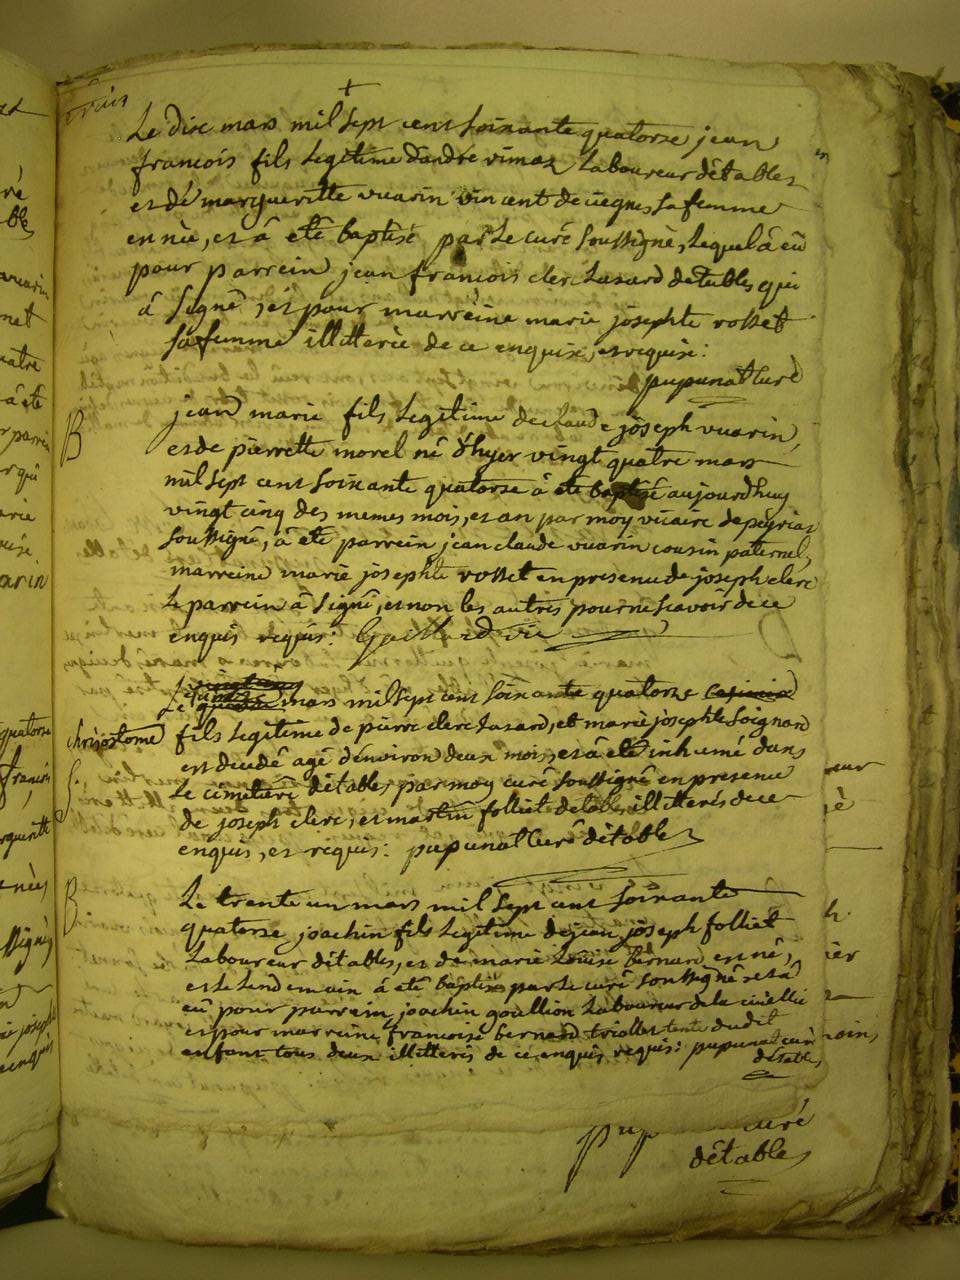 Le dix mars mil sept cent soixante quatorse jean
francois fils legitime d'andré vimaz Laboureur d'étables
et dé margueritte vuarin vincent de sa femme
est née, et â eté baptisé par le curé soussigné, Lequel â eû
pour parrein jean francois clerc Lazard detables qui
â signé, et pour marreine marie josephte rosset
sa femme illiterée de ce enquise, et requise:
pupunat Curé
B
jean marie fils Legitime de claude joseph vuarin,
et de pierrette morel né d'hyer vingt quatre mars
mil sept cent soixante quatorse â eté baptisé aujourdhuy
vingt cinq des memes mois, et an par moy vicaire de peyriat
soussigné, â eté parrein jean claude vuarin cousin paternel,
marreine marie josephte rosset en presence de joseph clerc
Le parrein â signé, et non les autres pour ne scavoir de ce
enquis requis: vic
Le mars mil sept cent soixante quatorse
chrisostome fils Legitime de pierre clerc Lazard, et marie josephte soignard
est decedé agé d'environ deux mois, et â eté inhumé dans
S.
Le cimetiére détables par moy curé soussigné en presence
de joseph clerc, et martin folliet détables illitterés de ce
enquis, et requis: pupunat Curé détables
B
Le trente un mars mil sept cent soixante
quatorse joachin fils Legitime de jean joseph folliet
Laboureur détables, et de marie Louise bernard est né,
et le lendemain â eté baptisé par le curé soussigné et â
eû pour parrein joachin goullion Laboureur de la
et pour marreine francoise bernard tante dudit
enfant tous deux illitterés de ce enquis, requis: pupunat curé
détables
curé
détables